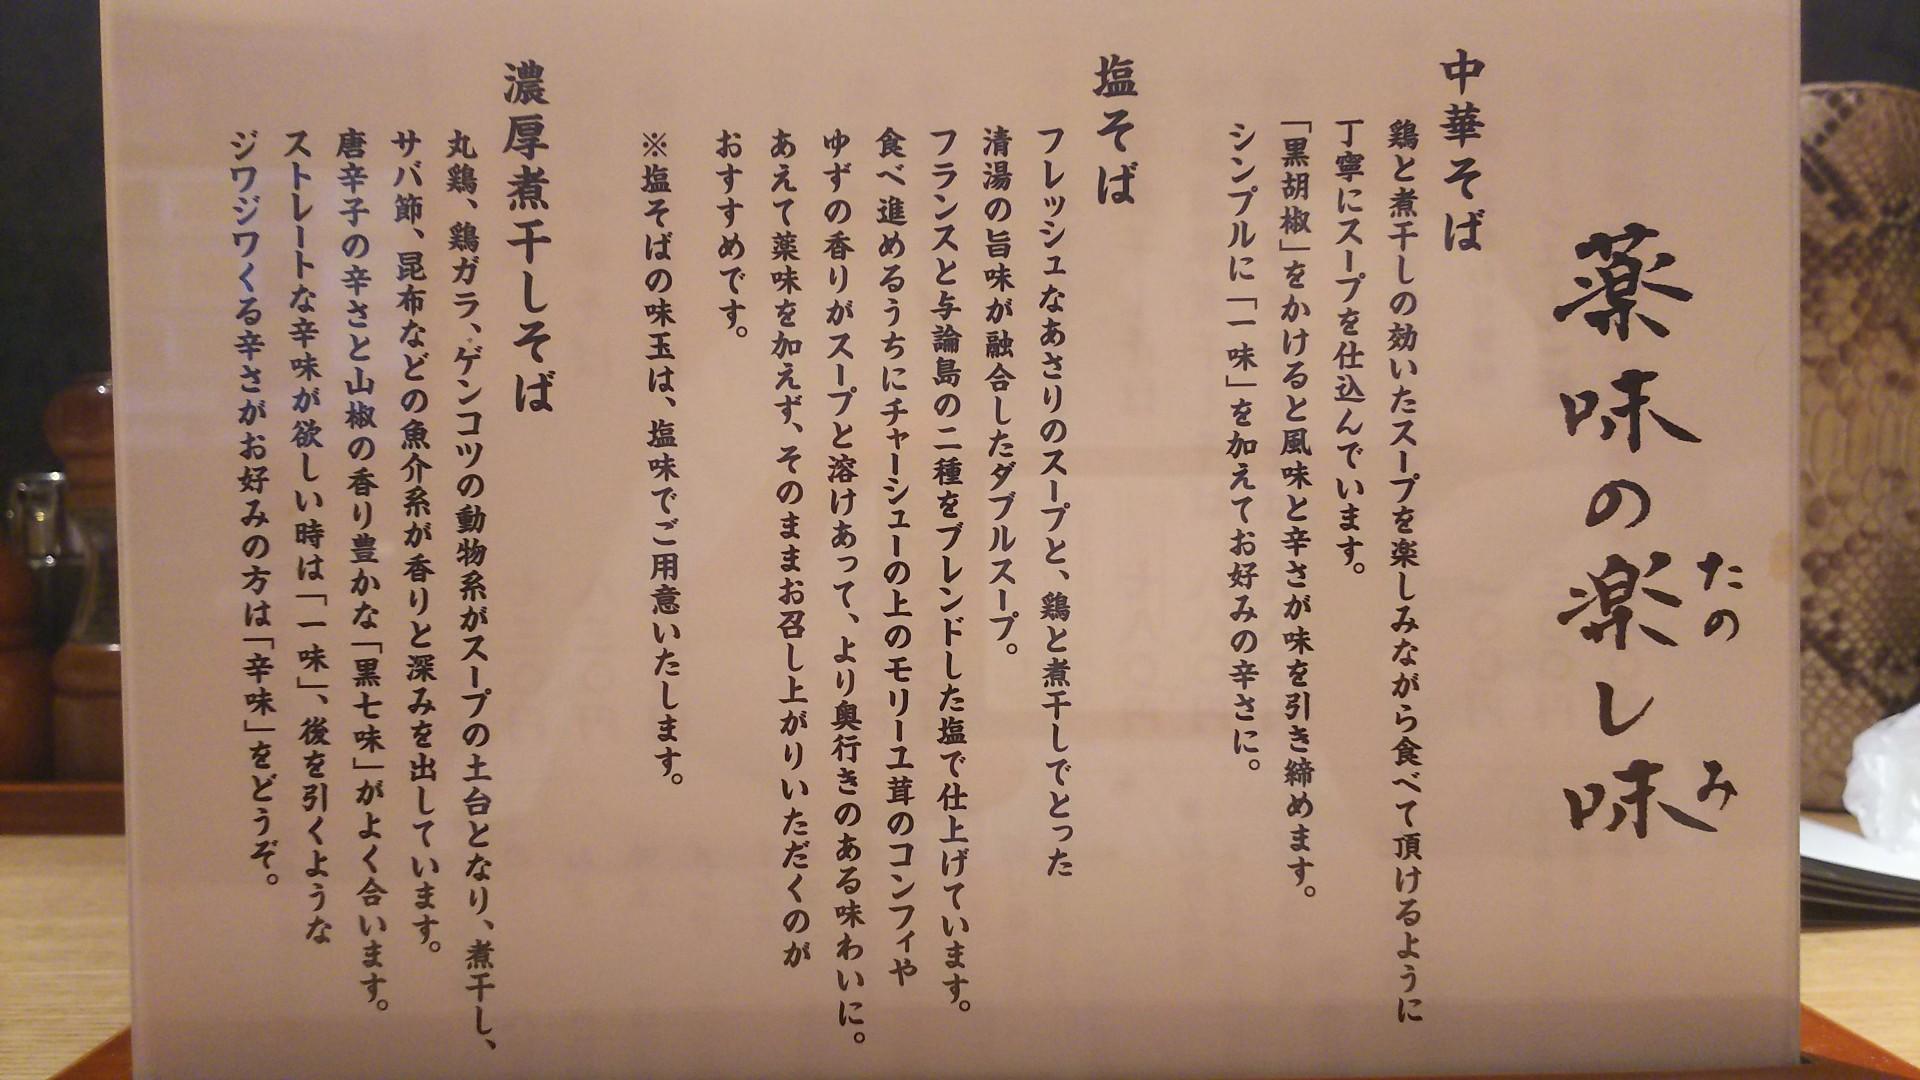 薬味の楽し味
たの
み
中華そば
鶏と煮干しの効いたスープを楽しみながら食べて頂けるように
丁寧にスープを仕込んでいます。
「黒胡椒」をかけると風味と辛さが味を引き締めます。
シンプルに「一味」を加えてお好みの辛さに。
塩そば
フレッシュなあさりのスープと、鶏と煮干しでとった
清湯の旨味が融合したダブルスープ。
フランスと与論島の二種をブレンドした塩で仕上げています。
食べ進めるうちにチャーシューの上のモリーユ茸のコンフィや
ゆずの香りがスープと溶けあって、より奥行きのある味わいに。
あえて薬味を加えず、そのままお召し上がりいただくのが
おすすめです。
※塩そばの味玉は、塩味でご用意いたします。
濃厚煮干しそば
丸鶏、鶏ガラ、ゲンコツの動物系がスープの土台となり、煮干し、
サバ節、昆布などの魚介系が香りと深みを出しています。
唐辛子の辛さと山椒の香り豊かな「黒七味」がよく合います。
ストレートな辛味が欲しい時は「一味」、後を引くような
ジワジワくる辛さがお好みの方は「辛味」をどうぞ。